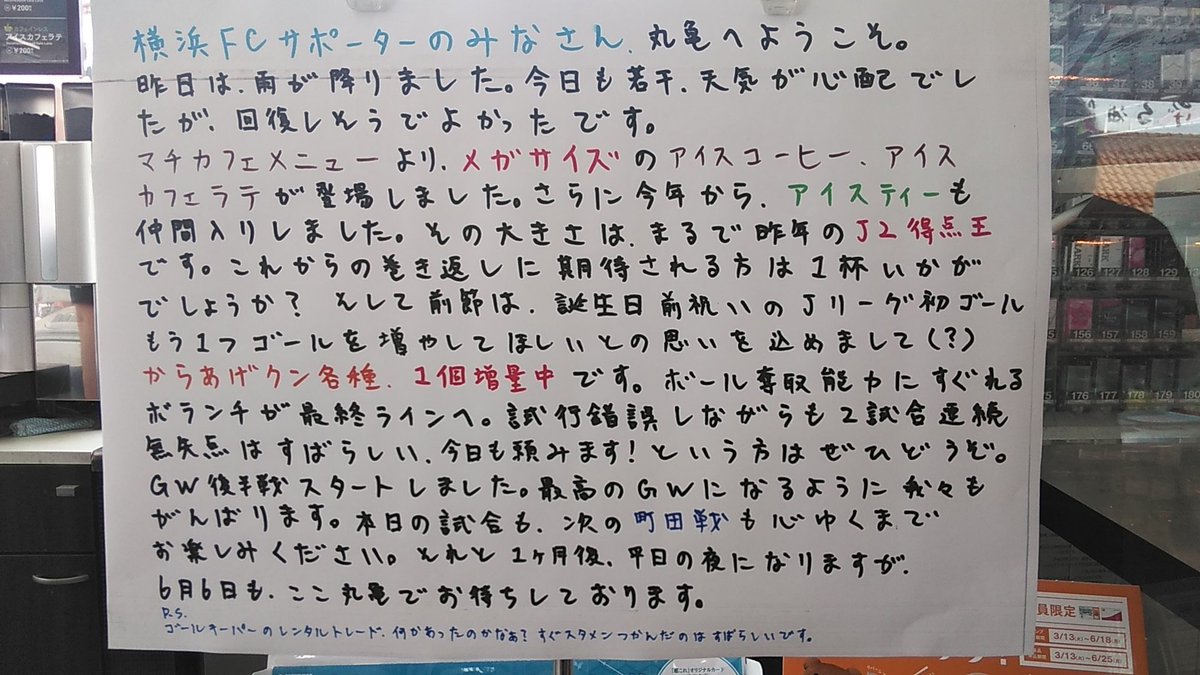 横浜FCサポーターのみなさん、丸亀へようこそ。
昨日は、雨が降りました。今日も若干、天気が心配でし
たが、回復しそうでよかったです。
マチカフェメニューより、メガサイズのアイスコーヒー、アイス
カフェラテが登場しました。さらに今年から、アイスティーも
仲間入りしました。その大きさは、まるで昨年のJ2得点王
です。これからの巻き返しに期待される方は1杯いかが
でしょうか? そして前節は、誕生日前祝いのJリーグ初ゴール
もう1つゴールを増やしてほしいとの思いを込めまして(?)
からあげクン各種、1個増量中です。ボール奪取能力にすぐれる
ボランチが最終ラインへ。試行錯誤しながらも2試合連続
無失点はすばらしい、今日も頼みます!という方はぜひどうぞ。
GW後半戦スタートしました。最高のGWになるように我々も
がんばります。本日の試合も、次の町田戦も心ゆくまで
お楽しみください。それと1ヶ月後、平日の夜になりますが、
6月6日も、ここ丸亀でお待ちしております。
P.S.
ゴールキーパーのレンタルトレード、何があったのかなぁ?すぐスタメンつかんだのはすばらしいです。
カフェインレス
アイスカフェラテ
¥200
¥200
126 127 128 129
156 157 158 159
177 178 179 180
員限定
3/13(火)~6/18(月)
3/13(火)~6/25(月)
「艦これ」オリジナルカード